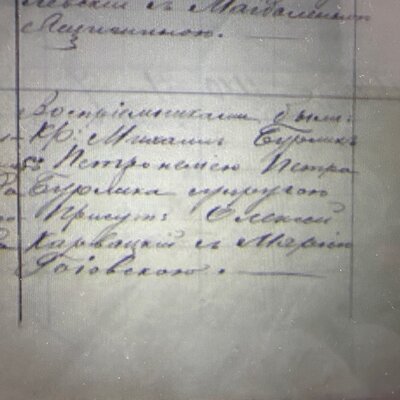 левскій съ Магдаленою
Яцишиною.
Воспріемниками были:
Кр: Михаилъ Бурлика
съ Петронелею Петра
Бурлика супругою
Присут: Олексій
Карвацкій съ Маріею
Гоіовскою.